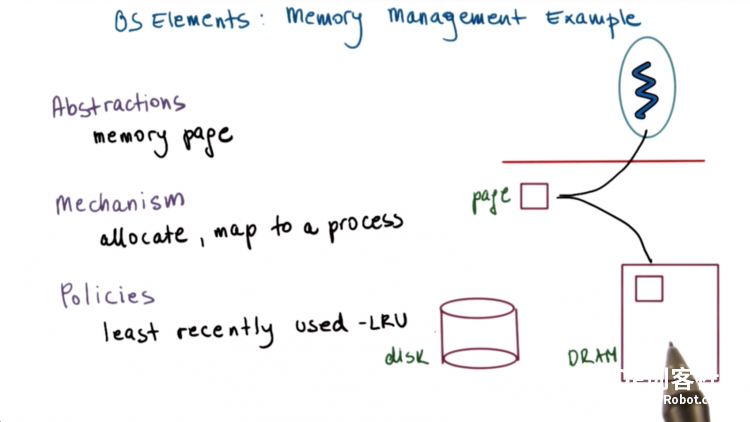 OS Elements: Memory Management Example
Abstractions
memory page
Mechanism
allocate, map to a process
Policies
least recently used -LRU
page
disk
DRAM
Robot.c